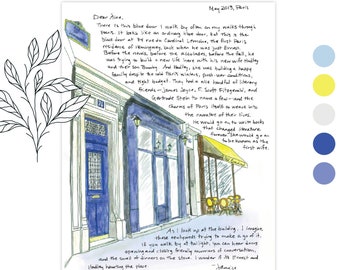 May 2013, Paris
Dear Alice,
There is this blue door I walk by often on my walks through
paris. It looks like an ordinary blue door, but this is the
blue door at 74 rue Cardinal Lemoine, the first Paris
residence of Hemingway, back when he was just Ernest.
Before the novels, before the accolades, before the fall, he
was trying to build a new life here with his new wife Hadley
and their son Bumby. And Hadley, she was building a happy
family despite the cold Paris winters, post-war conditions,
and tight budget. They had a nice handful of literary
friends—James Joyce, F. Scott Fitzgerald, and
Gertrude Stein to name a few—and the
charms of Paris itself to weave into
the narrative of their lives.
He would go on to write books
that changed literature
forever. She would go on
to be known as the
first wife.
As I look up at the building, I imagine
these newlyweds trying to make a go of it.
If you walk by at twilight, you can hear doors
opening and closing, friendly murmurs of conversation,
and the smell of dinners on the stove. I wonder if Mr. Ernest and
Hadley haunting the place
Janice